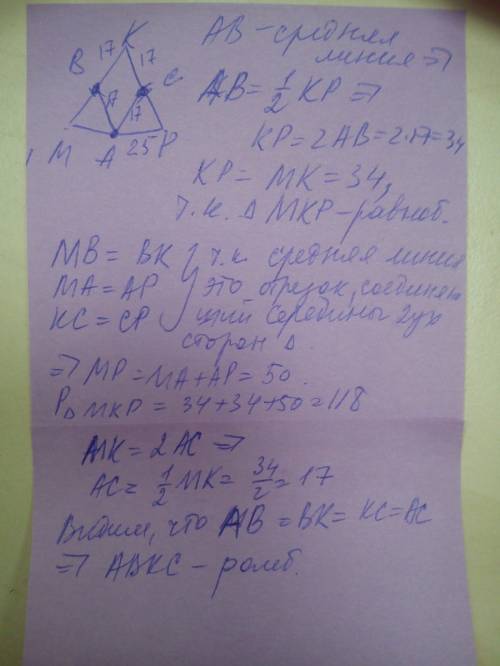 K
17
17
B
C
17
17
M A 25 P
AB - средняя
линия ⇒
AB = 1/2 KP ⇒
KP = 2AB = 2·17 = 34
KP = MK = 34,
т.к. Δ MKP - равноб.
MB = BK } т.к. средняя линия
MA = AP } это отрезок, соединяю
KC = CP } щий середины двух
сторон Δ.
⇒ MP = MA + AP = 50.
PΔ MKP = 34+34+50=118
MK = 2 AC ⇒
AC = 1/2 MK = 34/2 = 17
Видим, что AB = BK = KC = AC
⇒ ABKC - ромб.